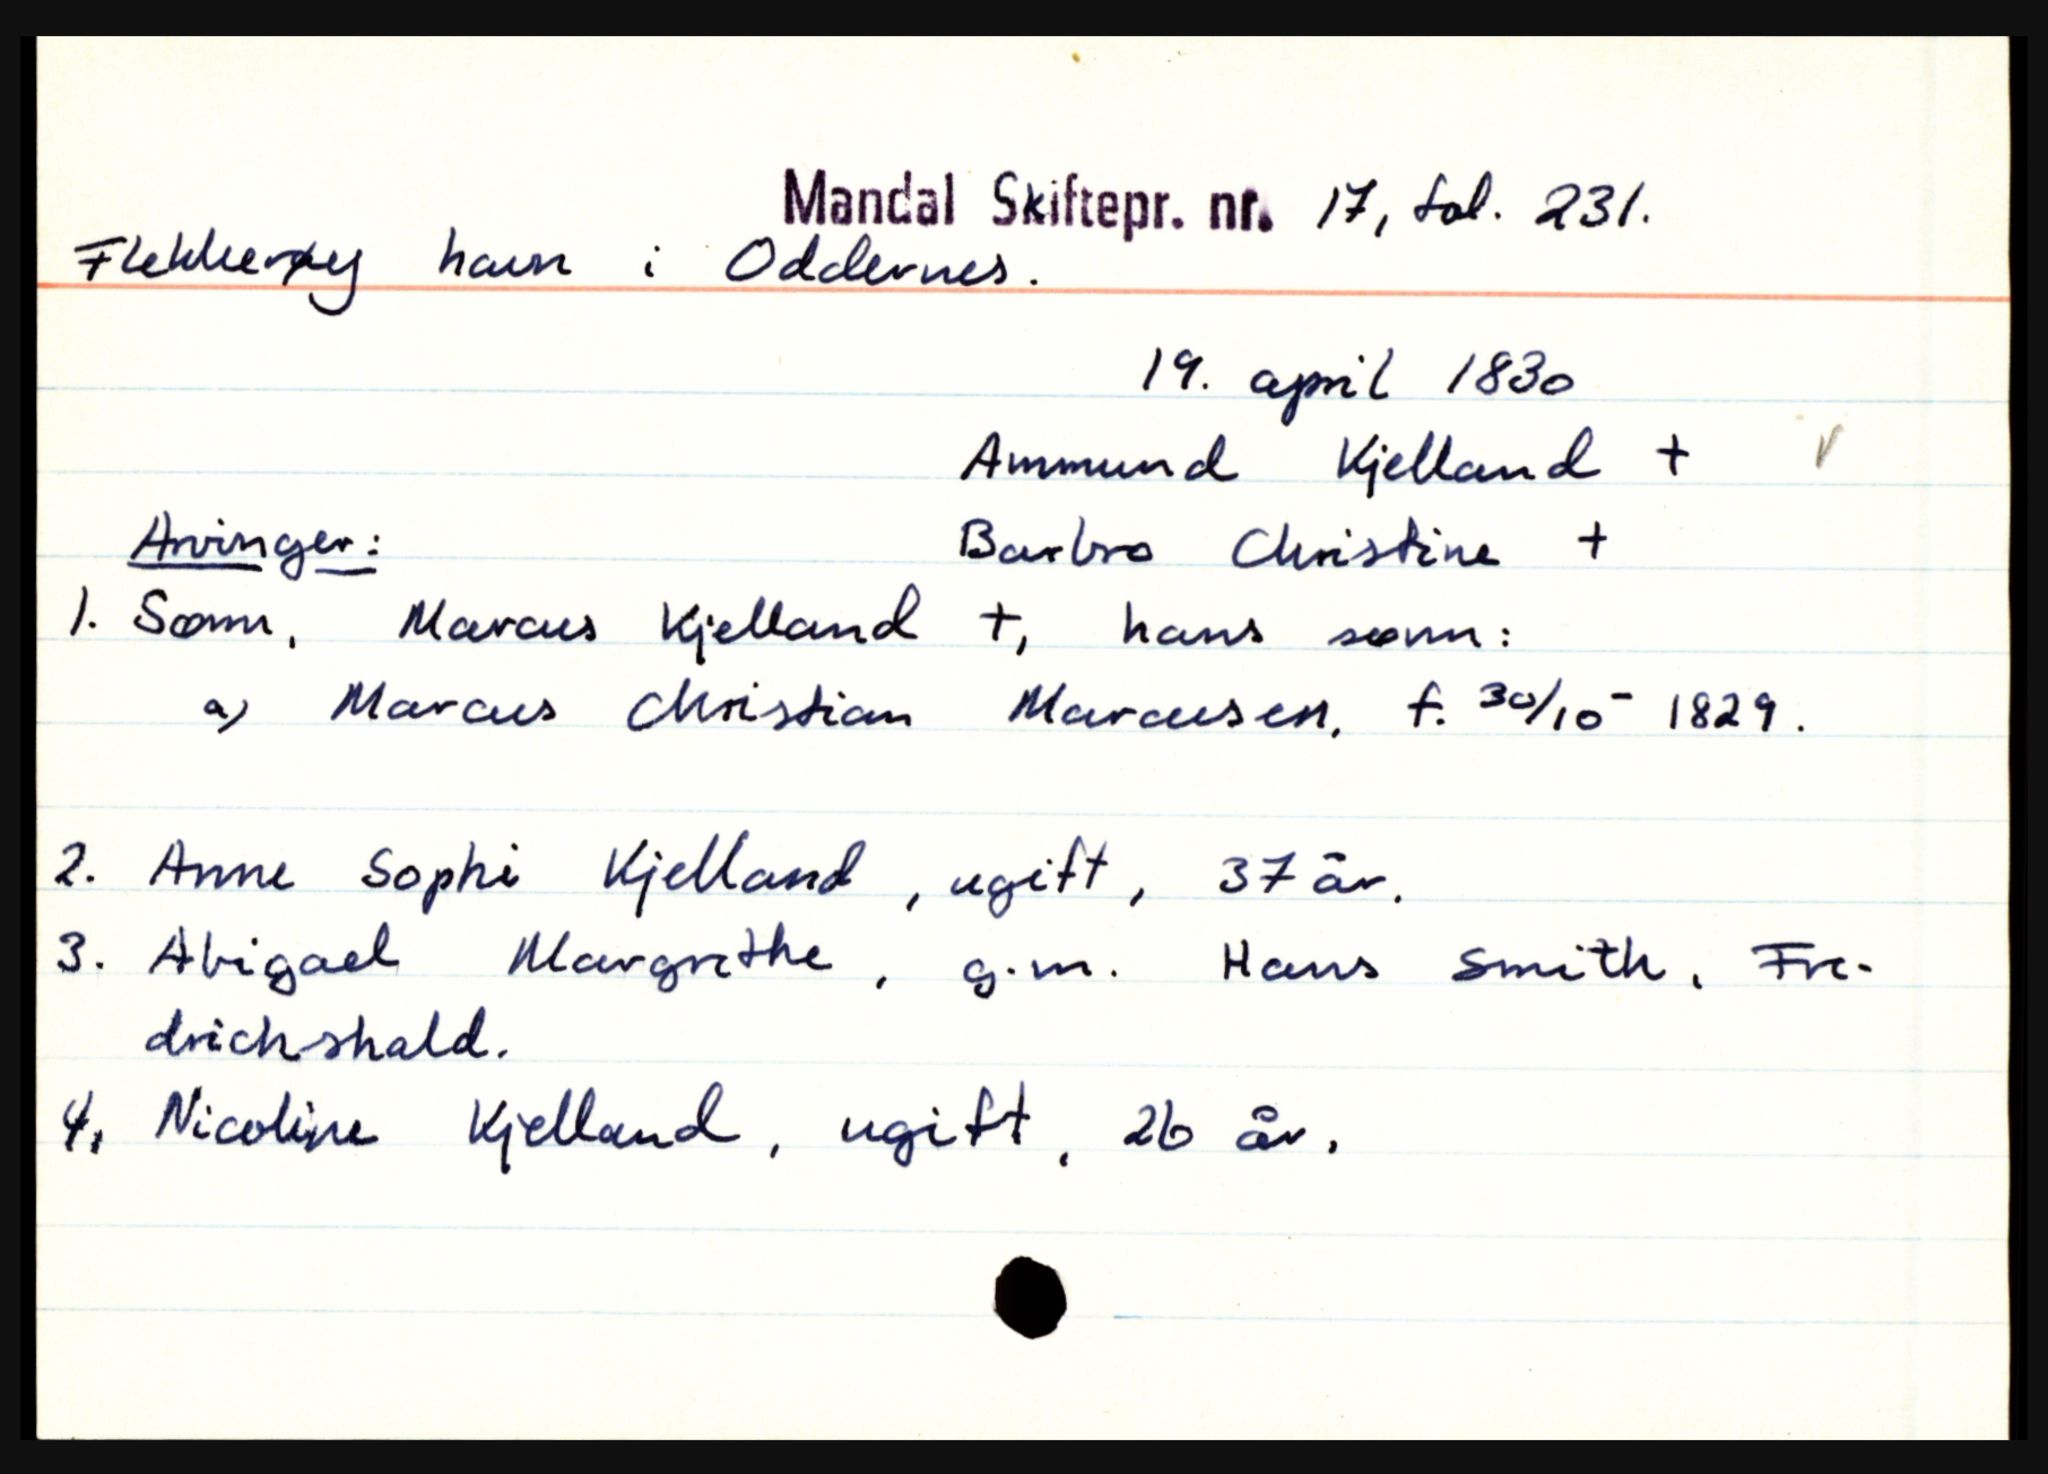 Mandal Skiftepr. nr. 17, fol. 231.
Flekkerøy havn i Oddernes.
19. april 1830
Ammund Kjelland +
Arvinger: Barbro Christine +
1. Sønn, Marcus Kjelland +, hans sønn:
a) Marcus Christian Marcussen, f. 30/10 - 1829.
2. Anne Sophi Kjelland, ugift, 37 år.
3. Abigael Margrethe, g.m. Hans Smith, Fre-
drichshald.
4. Nicoline Kjelland, ugift, 26 år.